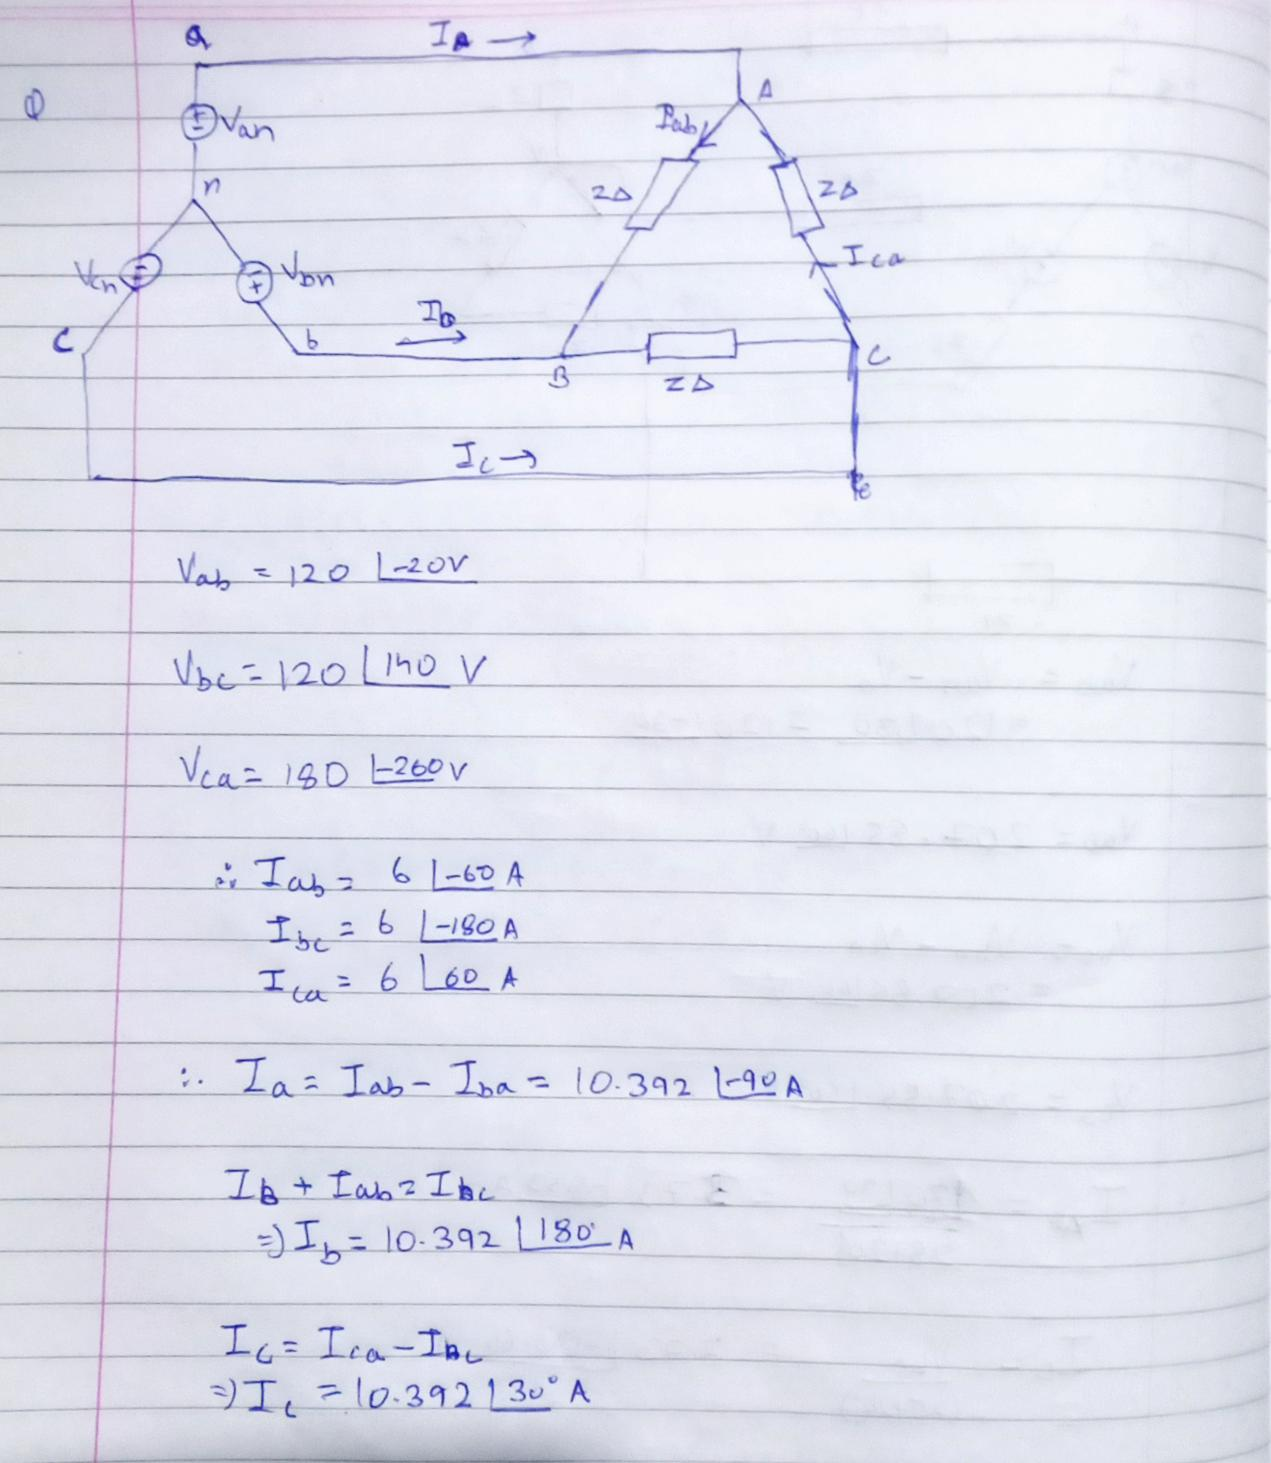 a
I_A →
A
①
Van
Iab
n
ZΔ
ZΔ
Vcn
Vbn
Ica
C
Ib
b
B
C
ZΔ
Ic →
Vab = 120 ∠-20V
Vbc = 120 ∠140 V
Vca = 180 ∠-260V
∴ Iab = 6 ∠-60 A
Ibc = 6 ∠-180 A
Ica = 6 ∠60 A
∴ Ia = Iab - Iba = 10.392 ∠-90 A
IB + Iab = Ibc
⇒ Ib = 10.392 ∠180° A
Ic = Ica - IBc
⇒ Ic = 10.392 ∠30° A